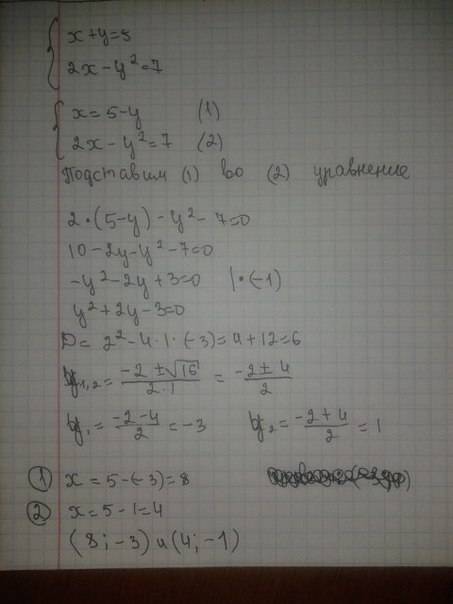 x+y=5
2x-y²=7
x=5-y (1)
2x-y²=7 (2)
Подставим (1) во (2) уравнение
2·(5-y)-y²-7=0
10-2y-y²-7=0
-y²-2y+3=0 |·(-1)
y²+2y-3=0
D= 2²-4·1·(-3)=4+12=6
y₁,₂= (-2±√16)/(2·1) = (-2±4)/2
y₁= (-2-4)/2 =-3 y₂= (-2+4)/2 =1
① x=5-(-3)=8
② x=5-1=4
(8;-3) и (4;-1)